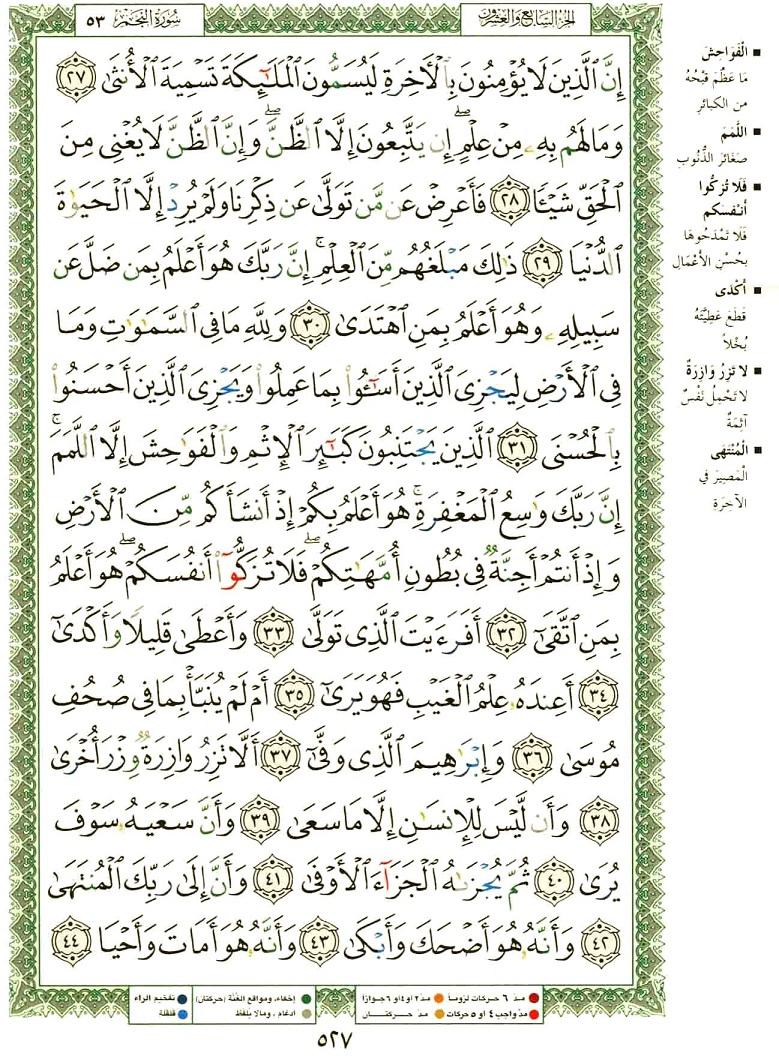 سُورَةُ النَّجْمِ ٥٣
الجُزْءُ السَّابِعُ وَالعِشْرُونَ
إِنَّ ٱلَّذِينَ لَا يُؤْمِنُونَ بِٱلْأَخِرَةِ لَيُسَمُّونَ ٱلْمَلَٰٓئِكَةَ تَسْمِيَةَ ٱلْأُنثَىٰ ٢٧
وَمَا لَهُم بِهِۦ مِنْ عِلْمٍ ۖ إِن يَتَّبِعُونَ إِلَّا ٱلظَّنَّ ۖ وَإِنَّ ٱلظَّنَّ لَا يُغْنِى مِنَ
ٱلْحَقِّ شَيْـًٔا ٢٨ فَأَعْرِضْ عَن مَّن تَوَلَّىٰ عَن ذِكْرِنَا وَلَمْ يُرِدْ إِلَّا ٱلْحَيَوٰةَ
ٱلدُّنْيَا ٢٩ ذَٰلِكَ مَبْلَغُهُم مِّنَ ٱلْعِلْمِ ۚ إِنَّ رَبَّكَ هُوَ أَعْلَمُ بِمَن ضَلَّ عَن
سَبِيلِهِۦ وَهُوَ أَعْلَمُ بِمَنِ ٱهْتَدَىٰ ٣٠ وَلِلَّهِ مَا فِى ٱلسَّمَٰوَٰتِ وَمَا
فِى ٱلْأَرْضِ لِيَجْزِىَ ٱلَّذِينَ أَسَٰٓـُٔوا۟ بِمَا عَمِلُوا۟ وَيَجْزِىَ ٱلَّذِينَ أَحْسَنُوا۟
بِٱلْحُسْنَى ٣١ ٱلَّذِينَ يَجْتَنِبُونَ كَبَٰٓئِرَ ٱلْإِثْمِ وَٱلْفَوَٰحِشَ إِلَّا ٱللَّمَمَ ۚ
إِنَّ رَبَّكَ وَٰسِعُ ٱلْمَغْفِرَةِ ۚ هُوَ أَعْلَمُ بِكُمْ إِذْ أَنشَأَكُم مِّنَ ٱلْأَرْضِ
وَإِذْ أَنتُمْ أَجِنَّةٌ فِى بُطُونِ أُمَّهَٰتِكُمْ ۖ فَلَا تُزَكُّوٓا۟ أَنفُسَكُمْ ۖ هُوَ أَعْلَمُ
بِمَنِ ٱتَّقَىٰٓ ٣٢ أَفَرَءَيْتَ ٱلَّذِى تَوَلَّىٰ ٣٣ وَأَعْطَىٰ قَلِيلًا وَأَكْدَىٰٓ
٣٤ أَعِندَهُۥ عِلْمُ ٱلْغَيْبِ فَهُوَ يَرَىٰٓ ٣٥ أَمْ لَمْ يُنَبَّأْ بِمَا فِى صُحُفِ
مُوسَىٰ ٣٦ وَإِبْرَٰهِيمَ ٱلَّذِى وَفَّىٰٓ ٣٧ أَلَّا تَزِرُ وَازِرَةٌ وِزْرَ أُخْرَىٰ
٣٨ وَأَن لَّيْسَ لِلْإِنسَٰنِ إِلَّا مَا سَعَىٰ ٣٩ وَأَنَّ سَعْيَهُۥ سَوْفَ
يُرَىٰ ٤٠ ثُمَّ يُجْزَىٰهُ ٱلْجَزَآءَ ٱلْأَوْفَىٰ ٤١ وَأَنَّ إِلَىٰ رَبِّكَ ٱلْمُنتَهَىٰ
٤٢ وَأَنَّهُۥ هُوَ أَضْحَكَ وَأَبْكَىٰ ٤٣ وَأَنَّهُۥ هُوَ أَمَاتَ وَأَحْيَا ٤٤
الْفَوَاحِشَ
مَا عَظُمَ قُبْحُهُ
من الكبائرِ
اللَّمَمَ
صَغَائِرَ الذُّنُوبِ
فَلَا تُزَكُّوا
أَنْفُسَكم
فَلَا تَمْدَحُوهَا
بحُسْنِ الأعْمَال
أَكْدَى
قَطَعَ عَطِيَّتَهُ
بُخْلاً
لا تَزِرُ وَازِرَةٌ
لا تَحْمِلُ نَفْسٌ
آثِمَةٌ
الْمُنْتَهَى
المَصِيرَ في
الآخِرَةِ
مد ٦ حركات لزوماً مد ٢ أو ٤ أو ٦ جوازاً
مد واجب ٤ أو ٥ حركات مد حركتــان
إخفاء، ومواقع الغُنَّة (حركتان)
ادغام، ومالا يلفظ
تفخيم الراء
قلقلة
٥٢٧